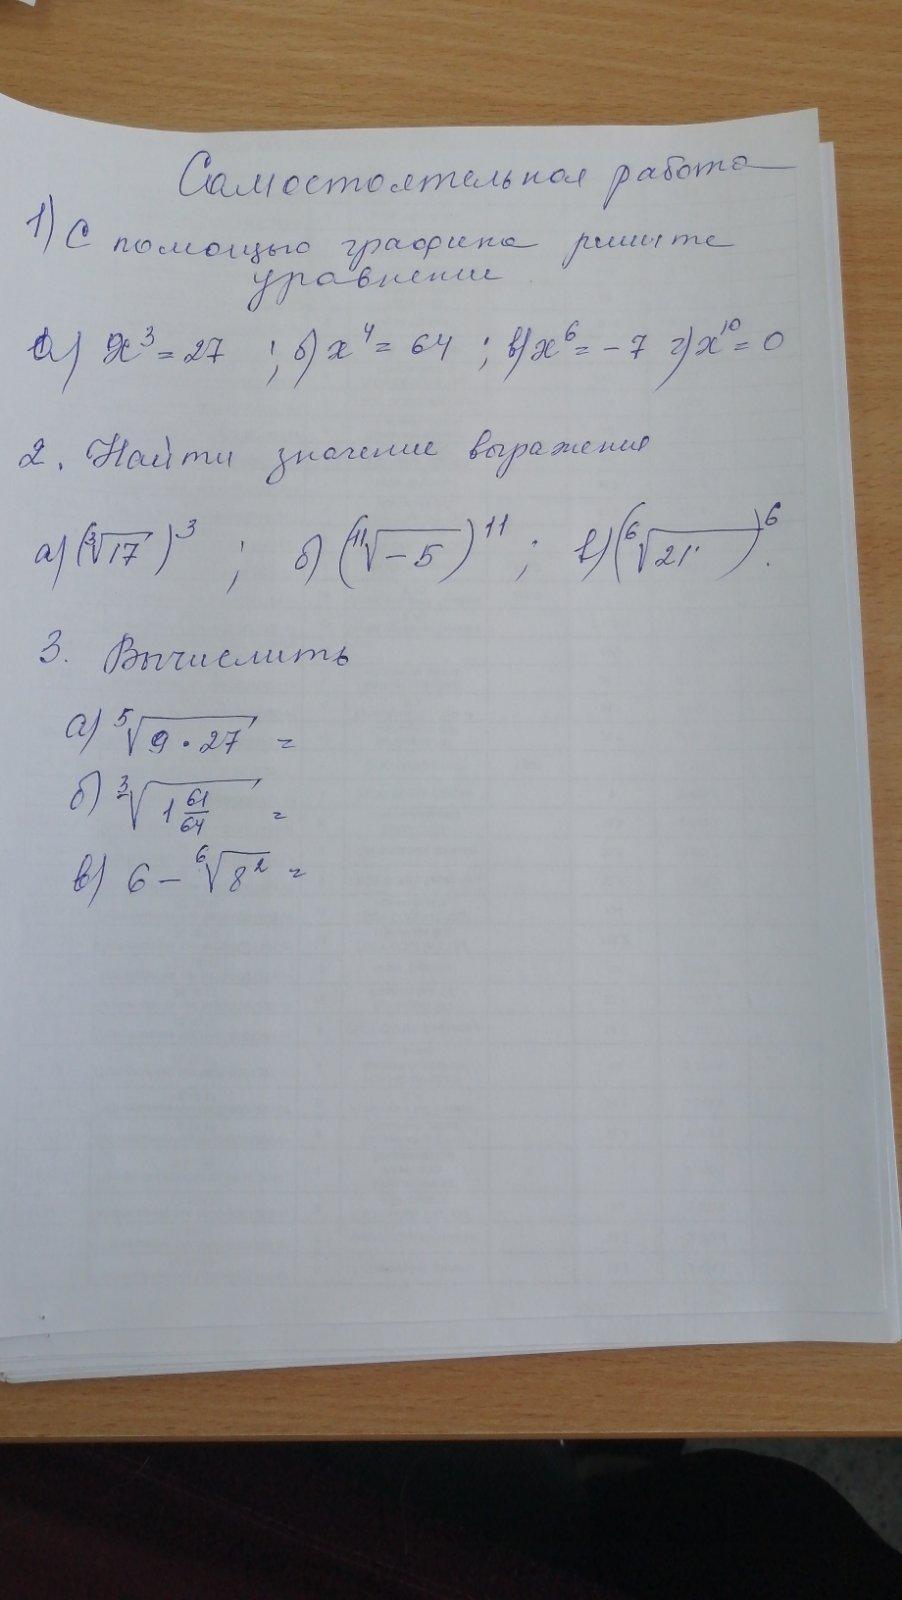 Самостоятельная работа
1) С помощью графика решите
уравнение
а) x³ = 27 ; б) x⁴ = 64 ; в) x⁶ = -7 г) x¹⁰ = 0
2. Найти значение выражения
а) (∛17)³ ; б) (¹¹√-5)¹¹ ; в) (⁶√21)⁶.
3. Вычислить
а) ⁵√9·27 =
б) ∛1 61/64 =
в) 6 - ⁶√8² =